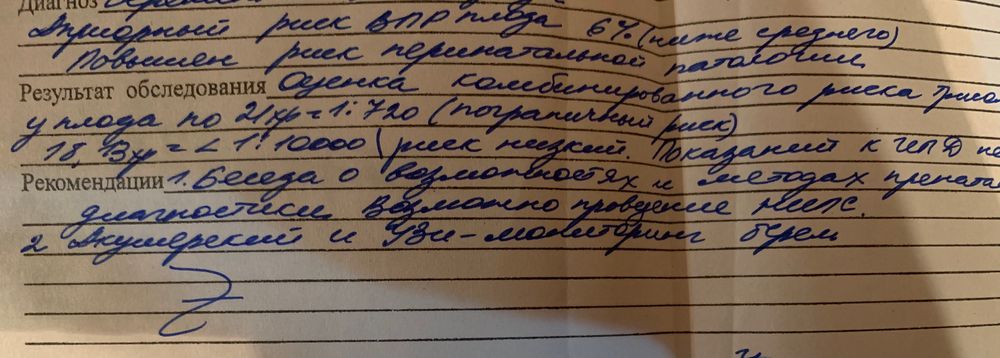 Диагноз
Априорный риск ВПР плода 6% (ниже среднего)
Повышен риск перинатальной патологии
Результат обследования Оценка комбинированного риска трисо
у плода по 21хр = 1:720 (пограничный риск)
18, 13хр = < 1:10000 (риск низкий. Показаний к ИПД не
Рекомендации 1. Беседа о возможностях и методах прената
диагностики. Возможно проведение НИПС.
2 Акушерский и УЗИ-мониторинг берем